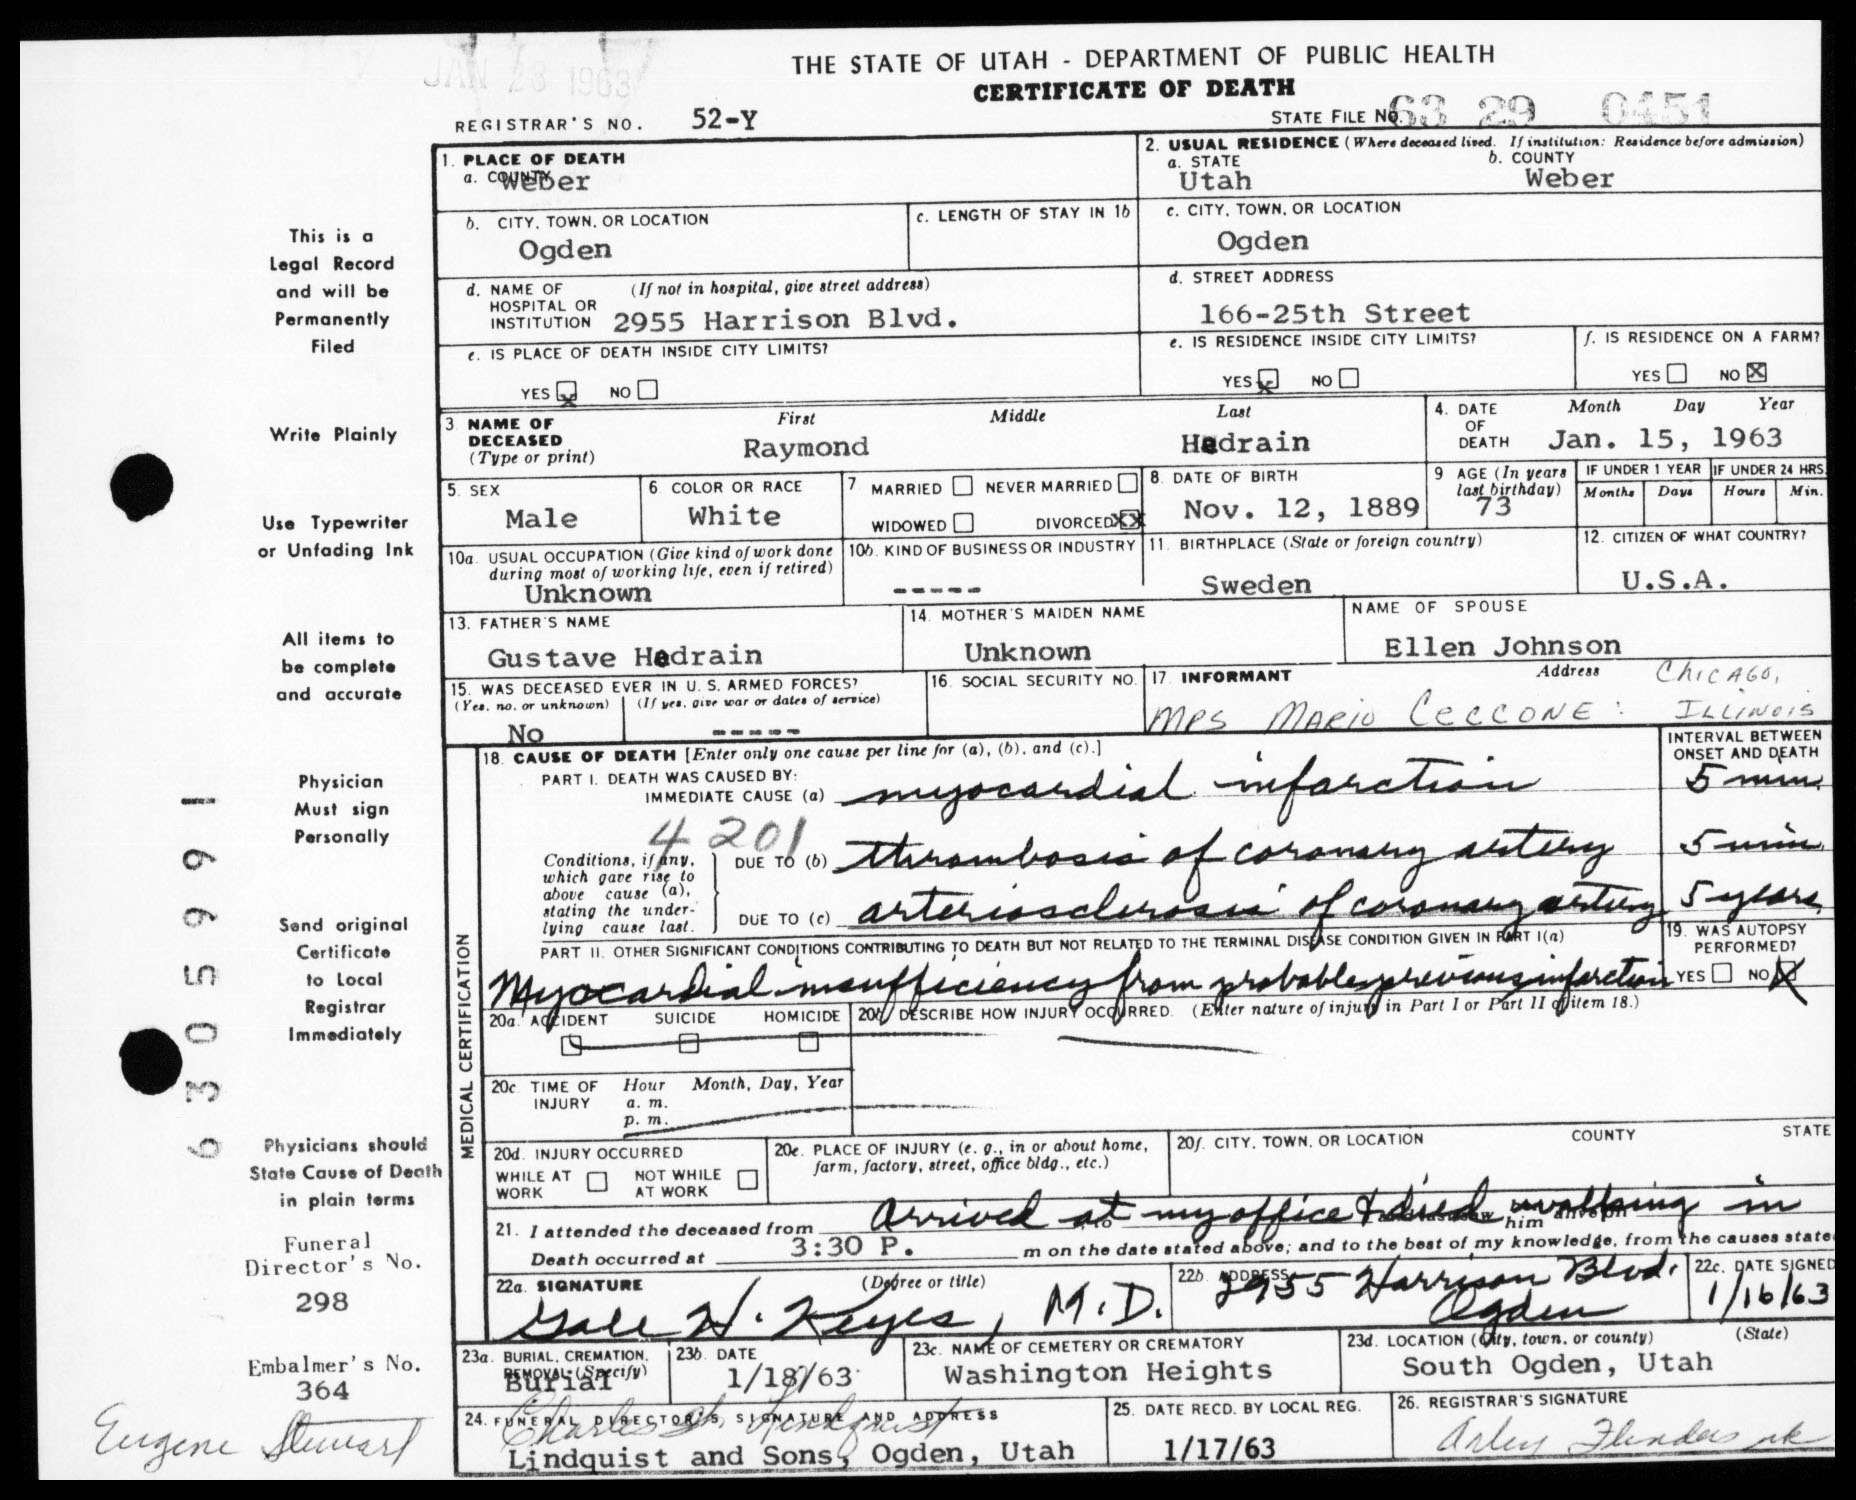 JAN 28 1963
THE STATE OF UTAH - DEPARTMENT OF PUBLIC HEALTH
CERTIFICATE OF DEATH
REGISTRAR'S NO. 52-Y
STATE FILE NO. 63 29 0451
This is a
Legal Record
and will be
Permanently
Filed
Write Plainly
Use Typewriter
or Unfading Ink
All items to
be complete
and accurate
Physician
Must sign
Personally
Send original
Certificate
to Local
Registrar
Immediately
Physicians should
State Cause of Death
in plain terms
Funeral
Director's No.
298
Embalmer's No.
364
Eugene Stewart
63059991
1. PLACE OF DEATH
a. COUNTY
Weber
2. USUAL RESIDENCE (Where deceased lived. If institution: Residence before admission)
a. STATE b. COUNTY
Utah Weber
b. CITY, TOWN, OR LOCATION
Ogden
c. LENGTH OF STAY IN 1b
c. CITY, TOWN, OR LOCATION
Ogden
d. NAME OF HOSPITAL OR INSTITUTION (If not in hospital, give street address)
2955 Harrison Blvd.
d. STREET ADDRESS
166-25th Street
e. IS PLACE OF DEATH INSIDE CITY LIMITS?
YES x NO
e. IS RESIDENCE INSIDE CITY LIMITS?
YES x NO
f. IS RESIDENCE ON A FARM?
YES NO X
3. NAME OF DECEASED (Type or print)
First Middle Last
Raymond Hedrain
4. DATE OF DEATH Month Day Year
Jan. 15, 1963
5. SEX
Male
6. COLOR OR RACE
White
7 MARRIED NEVER MARRIED
WIDOWED DIVORCED XX
8. DATE OF BIRTH
Nov. 12, 1889
9 AGE (In years last birthday)
73
IF UNDER 1 YEAR
Months Days
IF UNDER 24 HRS.
Hours Min.
10a. USUAL OCCUPATION (Give kind of work done during most of working life, even if retired)
Unknown
10b. KIND OF BUSINESS OR INDUSTRY
-----
11. BIRTHPLACE (State or foreign country)
Sweden
12. CITIZEN OF WHAT COUNTRY?
U.S.A.
13. FATHER'S NAME
Gustave Hedrain
14. MOTHER'S MAIDEN NAME
Unknown
NAME OF SPOUSE
Ellen Johnson
15. WAS DECEASED EVER IN U. S. ARMED FORCES?
(Yes, no, or unknown) (If yes, give war or dates of service)
No -----
16. SOCIAL SECURITY NO.
17. INFORMANT Address
MRS MARIO CECCONE: CHICAGO, ILLINOIS
MEDICAL CERTIFICATION
18. CAUSE OF DEATH [Enter only one cause per line for (a), (b), and (c).]
INTERVAL BETWEEN ONSET AND DEATH
PART I. DEATH WAS CAUSED BY:
IMMEDIATE CAUSE (a) myocardial infarction 5 min.
4201
Conditions, if any, which gave rise to above cause (a), stating the underlying cause last.
DUE TO (b) thrombosis of coronary artery 5 min.
DUE TO (c) arteriosclerosis of coronary artery 5 years
PART II. OTHER SIGNIFICANT CONDITIONS CONTRIBUTING TO DEATH BUT NOT RELATED TO THE TERMINAL DISEASE CONDITION GIVEN IN PART I(a)
Myocardial insufficiency from probable previous infarction
19. WAS AUTOPSY PERFORMED?
YES NO X
20a. ACCIDENT SUICIDE HOMICIDE
20b. DESCRIBE HOW INJURY OCCURRED. (Enter nature of injury in Part I or Part II of item 18.)
20c. TIME OF INJURY Hour Month, Day, Year
a. m.
p. m.
20d. INJURY OCCURRED
WHILE AT WORK NOT WHILE AT WORK
20e. PLACE OF INJURY (e. g., in or about home, farm, factory, street, office bldg., etc.)
20f. CITY, TOWN, OR LOCATION COUNTY STATE
21. I attended the deceased from Arrived at my office & died walking in
to and last saw him alive on
Death occurred at 3:30 P. m on the date stated above; and to the best of my knowledge, from the causes state
22a. SIGNATURE (Degree or title)
Gale H. Keyes, M.D.
22b. ADDRESS
2955 Harrison Blvd.
Ogden
22c. DATE SIGNED
1/16/63
23a. BURIAL, CREMATION, REMOVAL (Specify)
Burial
23b. DATE
1/18/63
23c. NAME OF CEMETERY OR CREMATORY
Washington Heights
23d. LOCATION (City, town, or county) (State)
South Ogden, Utah
24. FUNERAL DIRECTOR'S SIGNATURE AND ADDRESS
Charles Lindquist
Lindquist and Sons, Ogden, Utah
25. DATE RECD. BY LOCAL REG.
1/17/63
26. REGISTRAR'S SIGNATURE
Arley Flinders